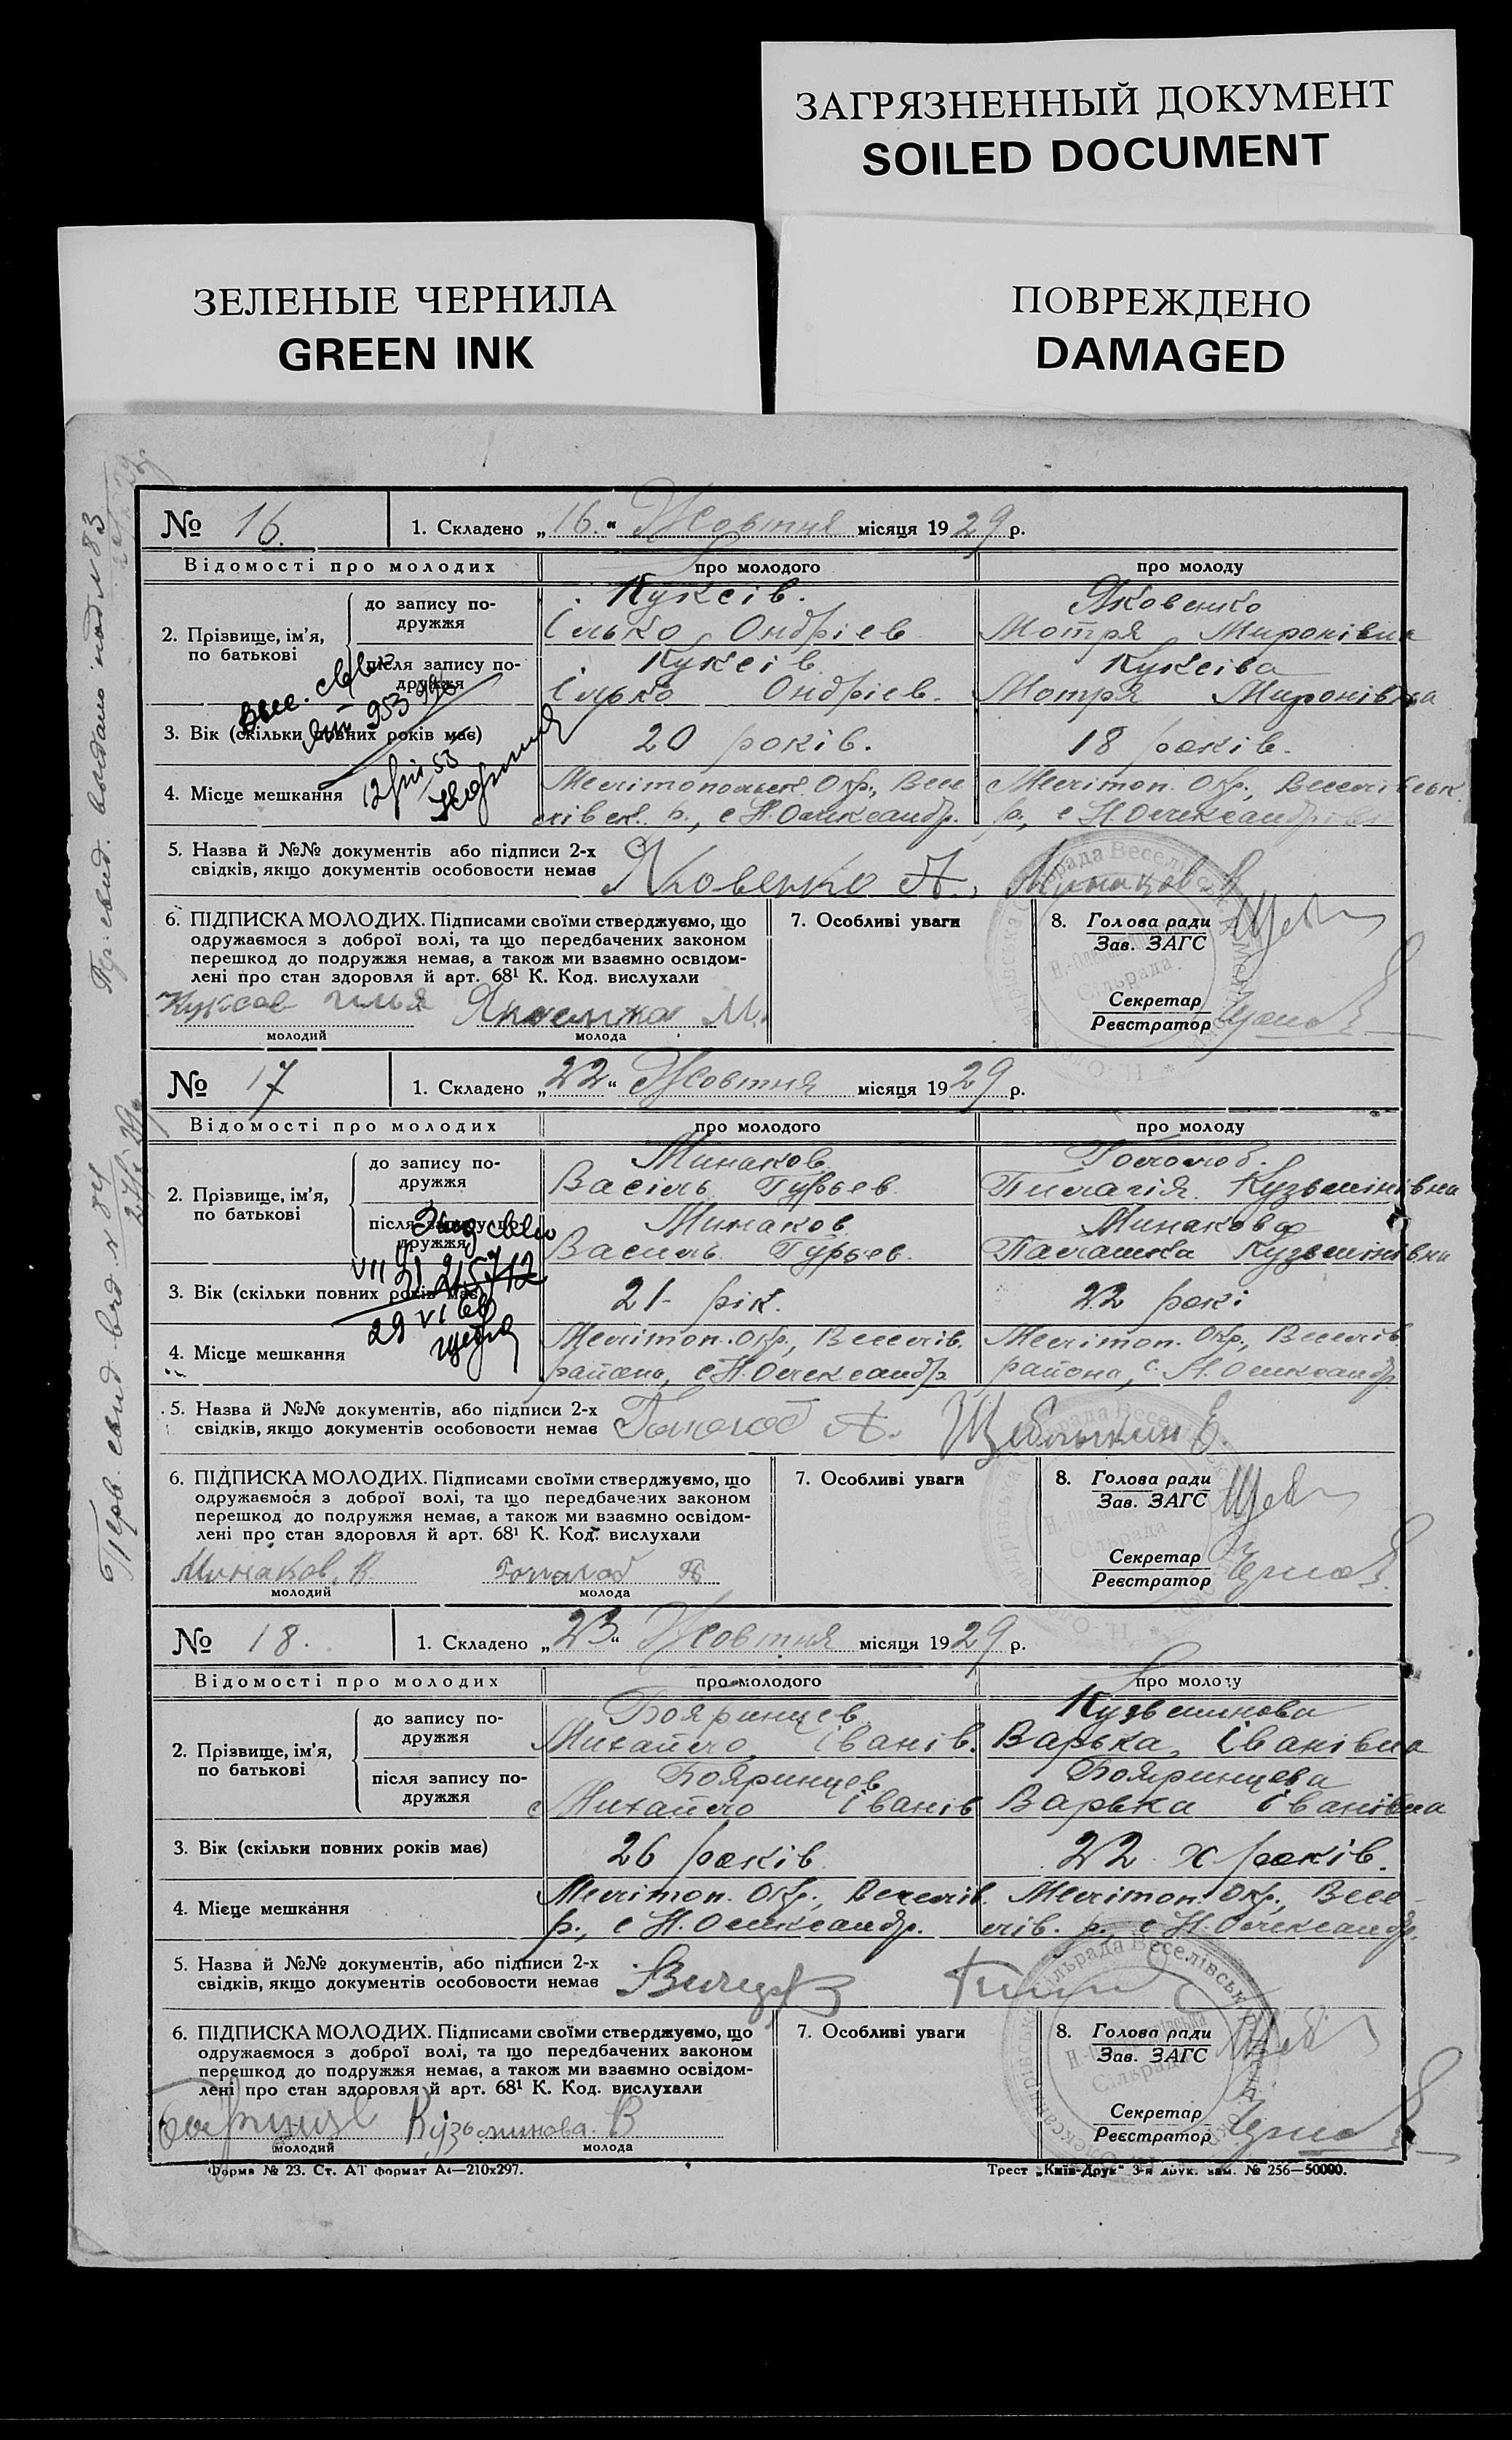 ЗАГРЯЗНЕННЫЙ ДОКУМЕНТ
SOILED DOCUMENT
ЗЕЛЕНЫЕ ЧЕРНИЛА
GREEN INK
ПОВРЕЖДЕНО
DAMAGED
№ 16. 1. Складено „16.“ Жовтня місяця 1929 р.
Відомості про молодих про молодого про молоду
2. Прізвище, ім'я, по батькові
до запису подружжя
Куксів. Яковенко
Ілько Ондріев Мотря Миронівна
після запису по-
дружжя
Куксів Куксіва
Ілько Ондріев. Мотря Миронівна
3. Вік (скільки повних років має) 20 років. 18 років.
4. Місце мешкання
Мелітопольськ. Окр., Весе Мелітоп. Окр., Веселівськ.
лівськ. р., с Н. Олександр. р., с Н. Олександрівка
5. Назва й №№ документів або підписи 2-х
свідків, якщо документів особовости немає
Яковенко А., Минаков
6. ПІДПИСКА МОЛОДИХ. Підписами своїми стверджуємо, що
одружаємося з доброї волі, та що передбачених законом
перешкод до подружжя немає, а також ми взаємно освідом-
лені про стан здоровля й арт. 68¹ К. Код. вислухали
Куксов Илья Яковенко М.
молодий молода
7. Особливі уваги
8. Голова ради
Зав. ЗАГС
Секретар
Реєстратор
№ 17 1. Складено „22“ Жовтня місяця 1929 р.
Відомості про молодих про молодого про молоду
2. Прізвище, ім'я,
по батькові
до запису по-
дружжя
Минаков Гололоб.
Василь Гурьев Пилагія Кузьминівна
після запису по-
дружжя
Минаков Минакова
Василь Гурьев. Палашка Кузьминівна
3. Вік (скільки повних років має) 21- рік. 22 рокі
VII 215712
29 VI 60
4. Місце мешкання
Мелітоп. Окр., Веселів. Мелітоп. Окр., Веселів.
района, с Н. Олександр района, с. Н. Олександр
5. Назва й №№ документів, або підписи 2-х
свідків, якщо документів особовости немає
Гололоб А. Щеблыкин Е.
6. ПІДПИСКА МОЛОДИХ. Підписами своїми стверджуємо, що
одружаємося з доброї волі, та що передбачених законом
перешкод до подружжя немає, а також ми взаємно освідом-
лені про стан здоровля й арт. 68¹ К. Код. вислухали
Минаков. В. Голалоб П
молодий молода
7. Особливі уваги
8. Голова ради
Зав. ЗАГС
Секретар
Реєстратор
№ 18. 1. Складено „23“ Жовтня місяця 1929 р.
Відомості про молодих про молодого про молоду
2. Прізвище, ім'я,
по батькові
до запису по-
дружжя
Бояринцев Кузьминова
Михайло Іванів. Варька, Іванівна
після запису по-
дружжя
Бояринцев Бояринцева
Михайло Іванів Варька Іванівна
3. Вік (скільки повних років має) 26 років 22 х років.
4. Місце мешкання
Мелітоп. Окр., Веселів. Мелітоп. Окр., Весе-
р., с Н. Олександр. лів. р. с Н. Олександр.
5. Назва й №№ документів, або підписи 2-х
свідків, якщо документів особовости немає
6. ПІДПИСКА МОЛОДИХ. Підписами своїми стверджуємо, що
одружаємося з доброї волі, та що передбачених законом
перешкод до подружжя немає, а також ми взаємно освідом-
лені про стан здоровля й арт. 68¹ К. Код. вислухали
Кузьминова. В
молодий молода
7. Особливі уваги
8. Голова ради
Зав. ЗАГС
Секретар
Реєстратор
Форма № 23. Ст. АТ формат А4—210х297. Трест „Київ-Друк“ 3-я друк. зам. № 256—50000.